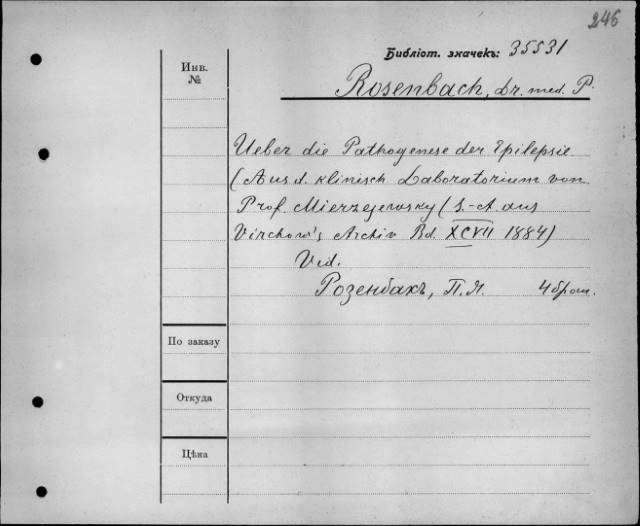 246
Библіот. значекъ: 35531
Инв.
№
Rosenbach, Dr. med. P.
Ueber die Pathogenese der Epilepsie
(Aus d. klinisch. Laboratorium von
Prof. Mierzejewsky (S.-A. aus
Virchow's Archiv Bd. XCVII 1884)
Vid.
Розенбахъ, П.Я. 4 брош.
По заказу
Откуда
Цѣна